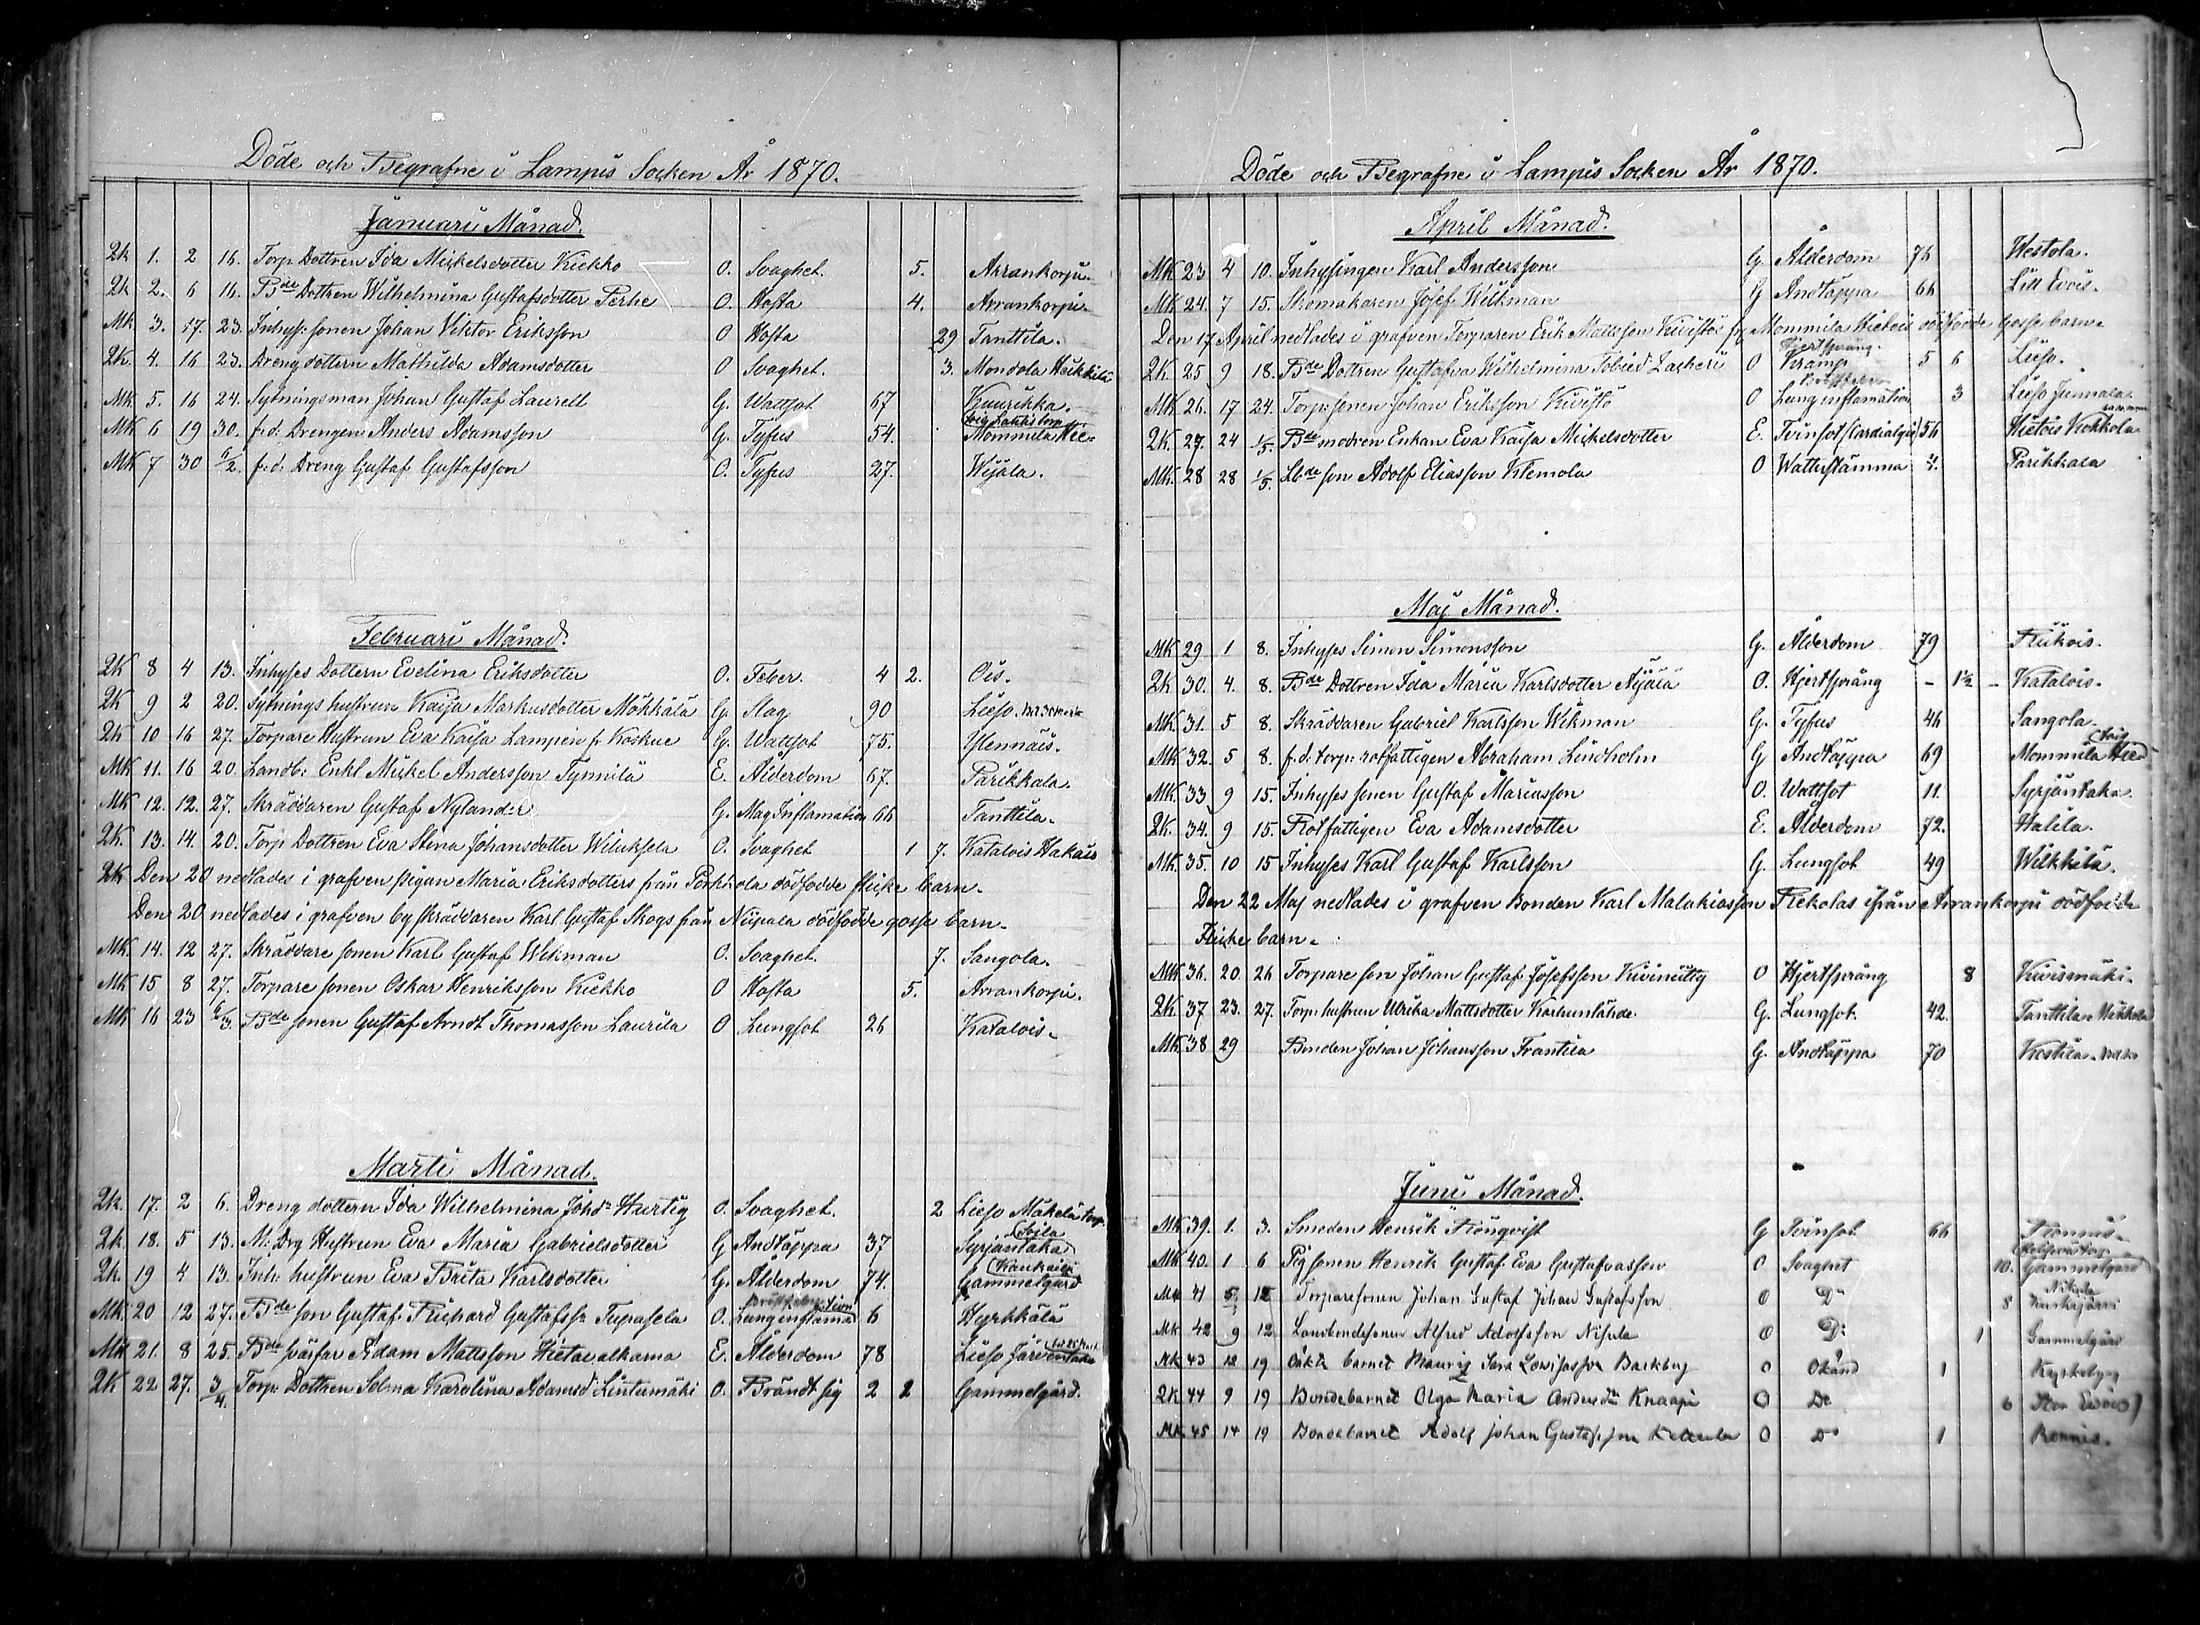 Döde och Begrafne i Lampis Socken År 1870.
Januari Månad.
Qk 1. 2 16. Torp. Dottren Ida Mickelsdotter Kiekko O. Svaghet. 5. Arrankorpi.
Qk 2. 6 16. Bde Dottren Wilhelmina Gustafsdotter Perhe O. Hosta 4. Arrankorpi.
Mk 3. 17. 23. Inhys: sonen Johan Viktor Eriksson O Hosta 29 Tanttila.
Qk. 4. 16 23. Dreng dottern Mathilda Adamsdotter O Svaghet. 3. Mondola Heikkilä
Mk. 5. 16 24. Sytningsman Johan Gustaf Laurell G. Wattsot 67 Kuurikka.
Mk 6 19 30. f.d. Drengen Anders Adamsson G. Tyfus 54. Mommila
MK 7 30 6/2. f.d. Dreng Gustaf Gustafsson O. Tyfus 27. Wijala.
Februari Månad.
QK 8 4 13. Inhyses Dottern Evelina Eriksdotter O. Feber. 4 2. Ois.
QK 9 2 20. Sytnings hustrun Kaija Markusdotter Mökkälä G. Slag 90 Lieso
Qk 10 16 27. Torpare Hustrun Eva Kaisa Lampén f. Koskue G. Wattsot 75. Ylennäis.
MK 11. 16 20. Landb: Enkl Mickel Andersson Tynnilä E. Ålderdom 67. Parikkala.
MK 12. 12. 27. Skräddaren Gustaf Nylander G. Mag Inflamation 66 Tanttila.
QK. 13. 14. 20. Torp Dottren Eva Stina Johansdotter Wiluksela O. Svaghet 1 7. Katalois Hakais
QK Den 20 nedlades i grafven pigan Maria Eriksdotters från Porkkola dödfödde flicke barn.
Den 20 nedlades i grafven by skräddaren Karl Gustaf Skogs från Nipala dödfödde gosse barn.
MK. 14. 12 27. Skräddare sonen Karl Gustaf Wikman O. Svaghet. 7. Sangola.
MK 15 8 27. Torpare sonen Oskar Henriksson Kiekko O Hosta 5. Arrankorpi.
MK 16 23 6/3. Bde sonen Gustaf Arndt Thomasson Laurila O Lungsot 26 Katalois.
Marti Månad.
Qk. 17. 2 6. Dreng dottern Ida Wilhelmina Johdr Hurtig O. Svaghet. 2 Lieso Mäkelä torp.
Qk 18. 5 13. M: Drg Hustrun Eva Maria Gabrielsdotter G Andtäppa 37 Syrjäntaka
Qk. 19 4 13. Inh: hustrun Eva Brita Karlsdotter G. Ålderdom 74. Gammelgård
MK 20 12 27. Bde son Gustaf Richard Gustafss. Tupasela O. Lunginflamation 6 Hyrkkälä
MK 21. 8 25. Bde farfar Adam Mattsson Hietavalkama E. Ålderdom 78 Lieso Järventaka
QK 22 27. 3/4. Torp. Dottren Selma Karolina Adamsd Lintumäki O. Brändt sig 2 2 Gammelgård.
Döde och Begrafne i Lampis Socken År 1870.
April Månad.
MK 23 4 10. Inhysingen Karl Andersson G. Ålderdom 76 Westola.
MK 24. 7 15. Skomakaren Josef Wikman G Andtäppa 66 Lill Evois.
Den 17 April nedlades i grafven Torparen Erik Mattsson Kivistös frn Mommila Hietois dödfödde gosse barn.
Hjertspräng.
QK 25 9 18. Bde Dottren Gustafva Wilhelmina Tobied Zackeri O Kramp 5 6 Lieso.
MK 26. 17 24. Torp: sonen Johan Eriksson Kivistö O Lunginflamation 3 Lieso Junnala
QK. 27. 24 1/5. Bde modren Enkan Eva Kaisa Mickelsdotter E. Tvinsot (Cardialgie) 56 Hietois Kokkola
MK. 28 28 1/5. Lbde son Adolf Eliasson Klemola O Wattustämma 4. Parikkala
Maj Månad.
MK 29 1 8. Inhyses Simon Simonsson G. Ålderdom 79 Kukois.
QK 30. 4. 8. Bde Dottren Ida Maria Karlsdotter Äijälä O. Hjertspräng - 1½ - Katalois.
MK. 31. 5 8. Skräddaren Gabriel Karlsson Wikman G. Tyfus 46 Sangola.
MK 32. 5 8. f.d. torp. rotfattigen Abraham Lindholm G Andtäppa 69 Mommila
MK. 33 9 15. Inhyses sonen Gustaf Mariasson O. Wattsot 11. Syrjäntaka.
QK. 34. 9 15. Rotfattigen Eva Adamsdotter E. Ålderdom 72. Halila.
MK. 35. 10 15 Inhyses Karl Gustaf Karlsson G. Lungsot 49 Wilkkilä.
Den 22 Maj nedlades i grafven Bonden Karl Malakiasson Rekolas ifrån Arrankorpi dödfödde
Flicke barn.
MK 36. 20. 26 Torpare son Johan Gustaf Josefsson O Hjertspräng 8 Kivismäki.
QK. 37 23. 27. Torp: hustrun Ulrika Mattsdotter Karhunlähde G. Lungsot 42. Tanttila Mikkola
MK 38 29 Bonden Johan Johansson Frantila G. Andtäppa 70 Kestila.
Juni Månad.
MK 39. 1. 3. Smeden Henrik Rönqvist G Tvinsot 66 Ronnis.
MK 40. 1 6 Pigsonen Henrik Gustaf Eva Gustafvasson O Svaghet 10. Gammelgård
MK 41 5 12 Torparesonen Johan Gustaf Johan Gustafsson O Do 8
MK 42 9 12 Landbondesonen Alfred Adolfsson O Do 1 Gammelgård
MK 43 12 19 Oäkta barnet Mauritz Sara Lovisasson Backberg O Okänd 1
QK 44 9 19 Bondebarnet Olga Maria Andersdr Knaapi O Do 6 Stor Evois
MK 45 14 19 Bondebarnet Adolf Johan Gustafsson O Do 1 Ronnis.